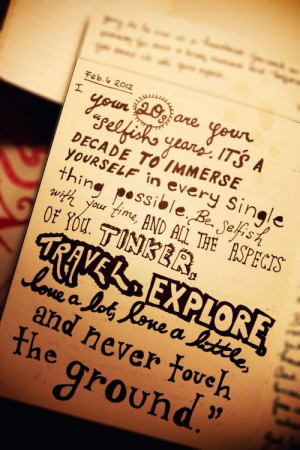 Feb. 6 2012
I
your 20s are your
"selfish years. IT'S A
DECADE TO IMMERSE
YOURSELF in every single
thing possible. Be selfish
with your time, AND ALL THE ASPECTS
OF YOU. TINKER,
TRAVEL, EXPLORE,
love a lot, love a little,
and never touch
the ground."